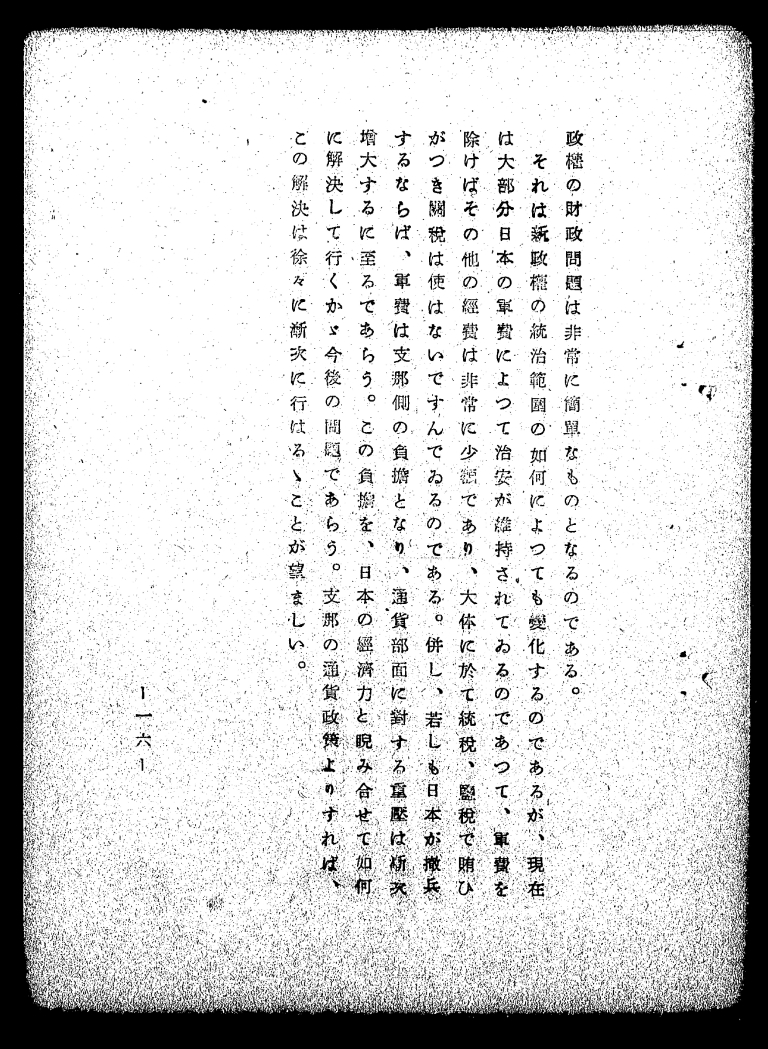 政權の財政問題は非常に簡單なものとなるのである。
それは新政權の統治範圍の如何によつても變化するのであるが、現在
は大部分日本の軍費によつて治安が維持されてゐるのであつて、軍費を
除けばその他の經費は非常に少額であり、大体に於て統稅、鹽稅で賄ひ
がつき關稅は使はないですんでゐるのである。併し、若しも日本が撤兵
するならば、軍費は支那側の負擔となり、通貨部面に對する重壓は漸次
增大するに至るであらう。この負擔を、日本の經濟力と睨み合せて如何
に解決して行くかゞ今後の問題であらう。支那の通貨政策よりすれば、
この解決は徐々に漸次に行はるゝことが望ましい。
―一六―